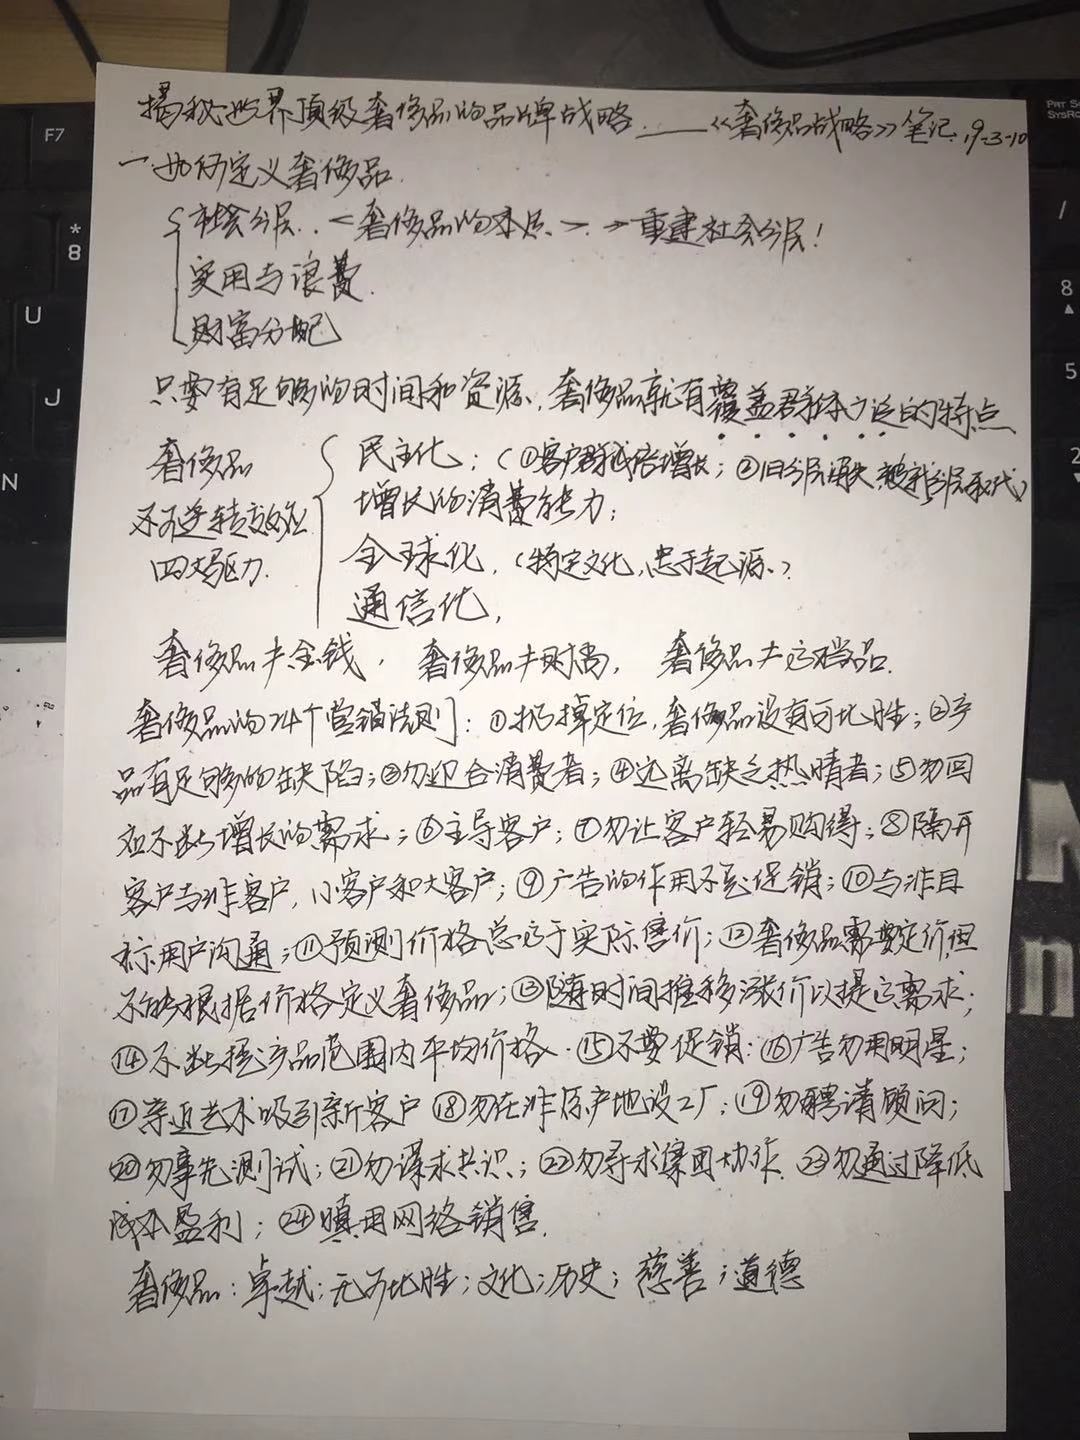 揭秘世界顶级奢侈品的品牌战略 ——《奢侈品战略》笔记. 19-3-10
一.如何定义奢侈品.
社会分层.. <奢侈品的本质> → 重建社会分层!
实用与浪费.
财富分配
只要有足够的时间和资源,奢侈品就有覆盖群体广泛的特点
奢侈品
不可逆转效应
四大驱力.
民主化; (①客户群成倍增长; ②旧分层消失,被新分层取代)
增长的消费能力;
全球化, (特定文化,忠于起源.)
通信化,
奢侈品≠金钱, 奢侈品≠时尚, 奢侈品≠高档品.
奢侈品的24个营销法则: ①扔掉定位,奢侈品没有可比性; ②产
品有足够的缺陷; ③勿迎合消费者; ④远离缺乏热情者; ⑤勿回
应不断增长的需求; ⑥主导客户; ⑦勿让客户轻易购得; ⑧隔开
客户与非客户,小客户和大客户; ⑨广告的作用不是促销; ⑩与非目
标用户沟通; ⑪预测价格总高于实际售价; ⑫奢侈品需要定价,但
不能根据价格定义奢侈品; ⑬随时间推移涨价以提高需求;
⑭不断提高产品范围内平均价格. ⑮不要促销: ⑯广告勿用明星;
⑰亲近艺术吸引新客户 ⑱勿在非原产地设工厂; ⑲勿聘请顾问;
⑳勿事先测试; ㉑勿谋求共识; ㉒勿寻求集团协作. ㉓勿通过降低
成本盈利; ㉔慎用网络销售.
奢侈品: 卓越; 无可比性; 文化; 历史; 慈善; 道德
F7
*
8
U
J
N
/
8
5
2